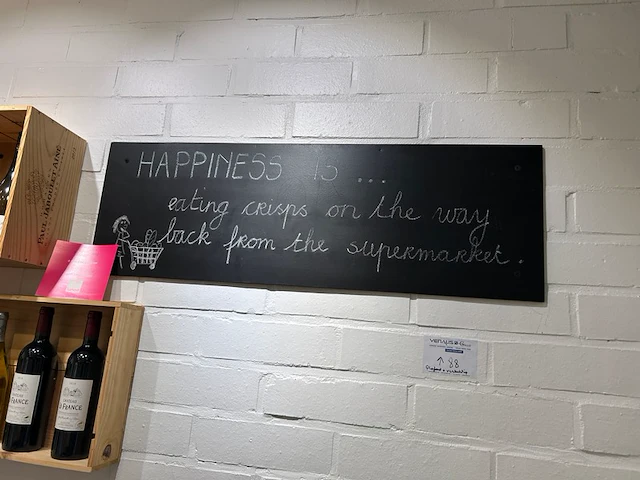 HAPPINESS is ...
eating crisps on the way
back from the supermarket.
PAUL JABOULET AINE
88
FRANCE
FRANCE